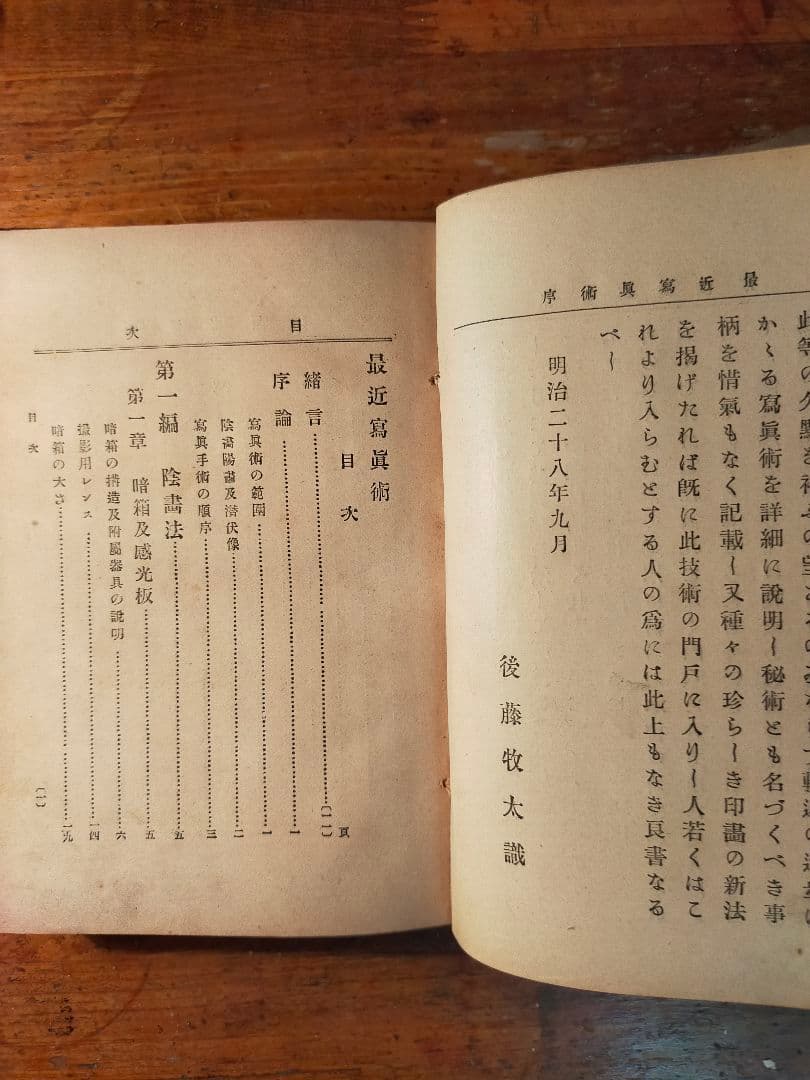 最近寫眞術序
かゝる寫眞術を詳細に說明し秘術とも名づくべき事
柄を惜氣もなく記載し又種々の珍らしき印畵の新法
を揭げたれば旣に此技術の門戶に入りし人若くはこ
れより入らむとする人の爲には此上もなき良書なる
べし
明治二十八年九月
後藤牧太識
目次
最近寫眞術
目次
頁
緖言……(一一)
序論……一
寫眞術の範圍……一
陰畵陽畵及潜伏像……二
寫眞手術の順序……三
第一編 陰畵法……五
第一章 暗箱及感光板……五
暗箱の搆造及附屬器具の說明……六
撮影用レンス……一四
暗箱の大さ……一九
目次
(一)